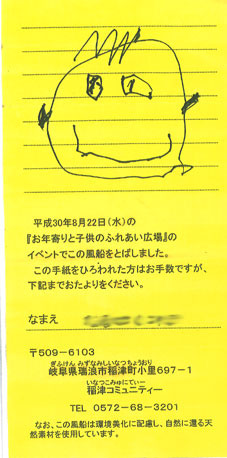 平成30年8月22日(水)の
『お年寄りと子供のふれあい広場』の
イベントでこの風船をとばしました。
この手紙をひろわれた方はお手数ですが、
下記までおたよりをください。
なまえ
〒509-6103
ぎふけん みずなみしいなつちょうおり
岐阜県瑞浪市稲津町小里697-1
いなつこみゅにてぃー
稲津コミュニティー
TEL 0572-68-3201
なお、この風船は環境美化に配慮し、自然に還る天
然素材を使用しています。